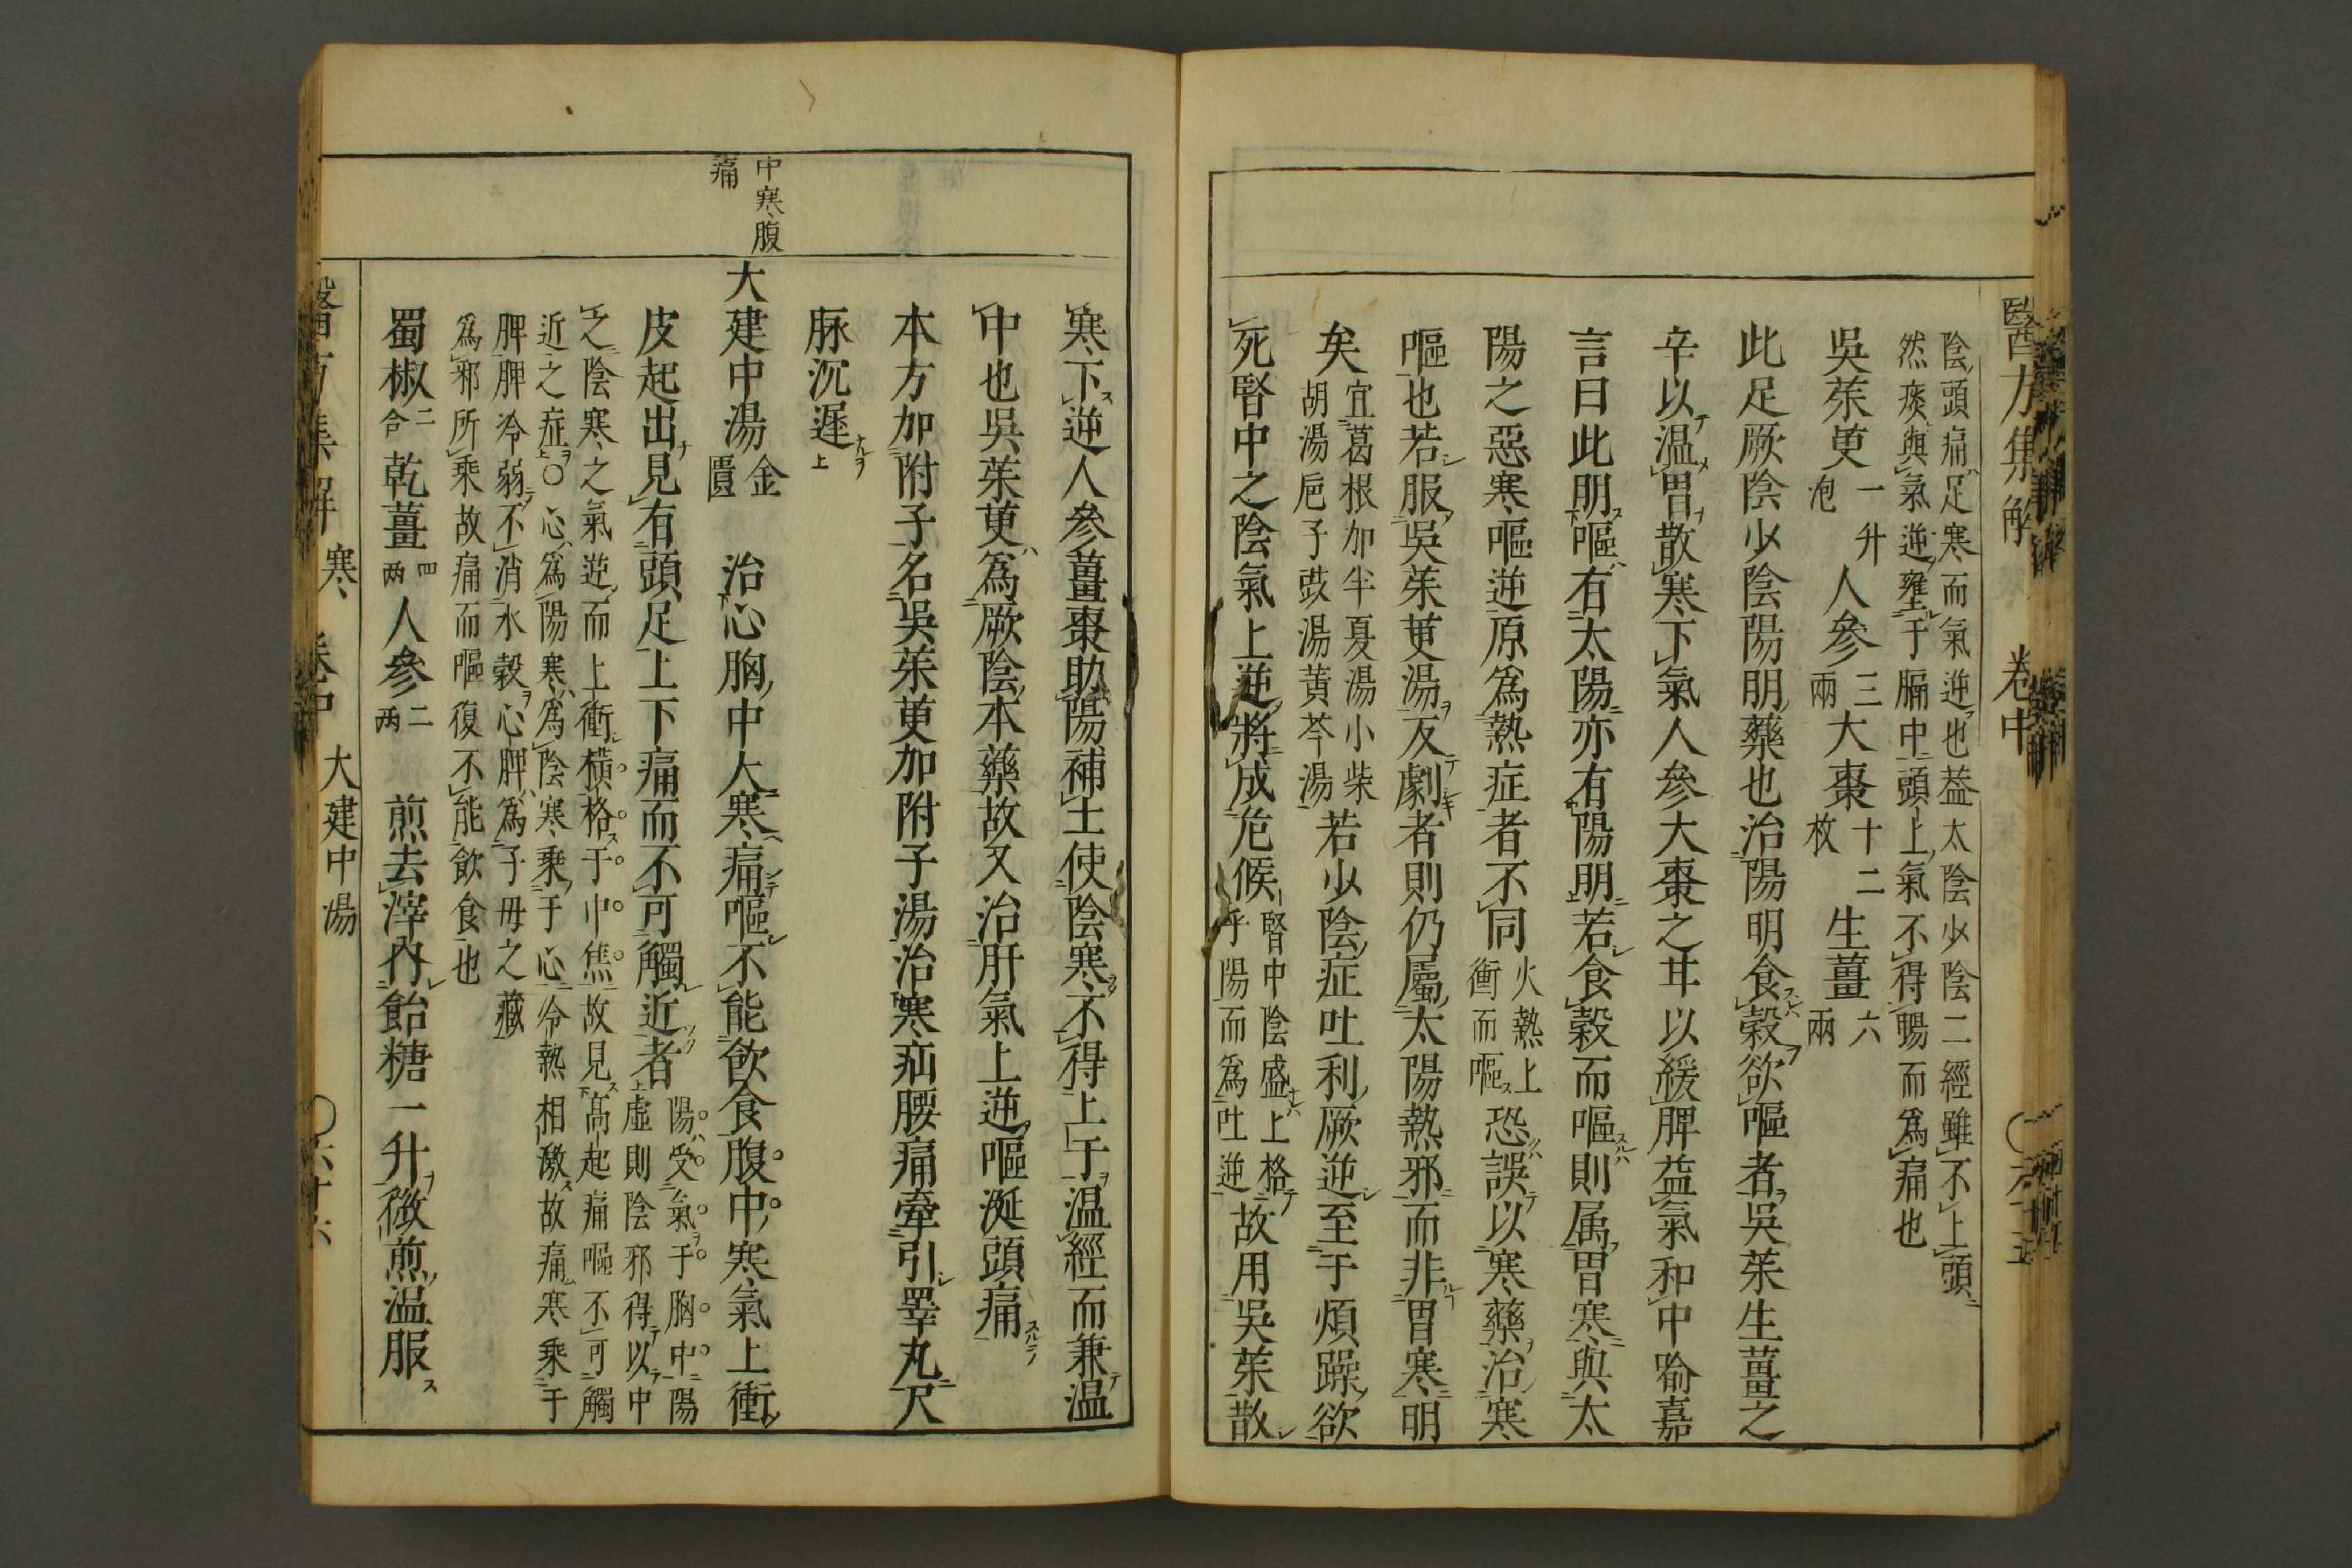 醫方集解 卷中
陰頭痛足寒而氣逆也蓋太陰少陰二經雖不上頭
然痰與氣逆壅于膈中頭上氣不得暢而為痛也
吳茱萸一升泡人參三兩大棗十二枚生薑六兩
此足厥陰少陰陽明藥也治陽明食穀欲嘔者吳茱生薑之
辛以温胃散寒下氣人參大棗之甘以緩脾益氣和中喻嘉
言曰此明嘔有太陽亦有陽明若食穀而嘔則属胃寒與太
陽之惡寒嘔逆原為熱症者不同火熱上衝而嘔恐誤以寒藥治寒
嘔也若服吳茱萸湯反劇者則仍屬太陽熱邪而非胃寒明
矣宜葛根加半夏湯小柴胡湯巵子豉湯黃芩湯若少陰症吐利厥逆至于煩躁欲
死腎中之陰氣上逆將成危候腎中陰盛上格乎陽而為吐逆故用吳茱散
寒下逆人參薑棗助陽補土使陰寒不得上于温經而兼温
中也吳茱萸為厥陰本藥故又治肝氣上逆嘔涎頭痛
本方加附子名吳茱萸加附子湯治寒疝腰痛牽引睪丸尺
脉沉遲
中寒腹痛
大建中湯金匱 治心胸中大寒痛嘔不能飲食腹中寒氣上衝
皮起出見有頭足上下痛而不可觸近者陽受氣于胸中陽虛則陰邪得以中
之陰寒之氣逆而上衝横格于中焦故見高起痛嘔不可觸
近之症○心為陽寒為陰寒乘于心冷熱相激故痛寒乘于
脾脾冷弱不消水穀心脾為子母之藏
為邪所乘故痛而嘔復不能飲食也
蜀椒二合乾薑四两人參二两 煎去滓內飴糖一升微煎温服
醫方集解 寒 卷中 大建中湯 ○六十六